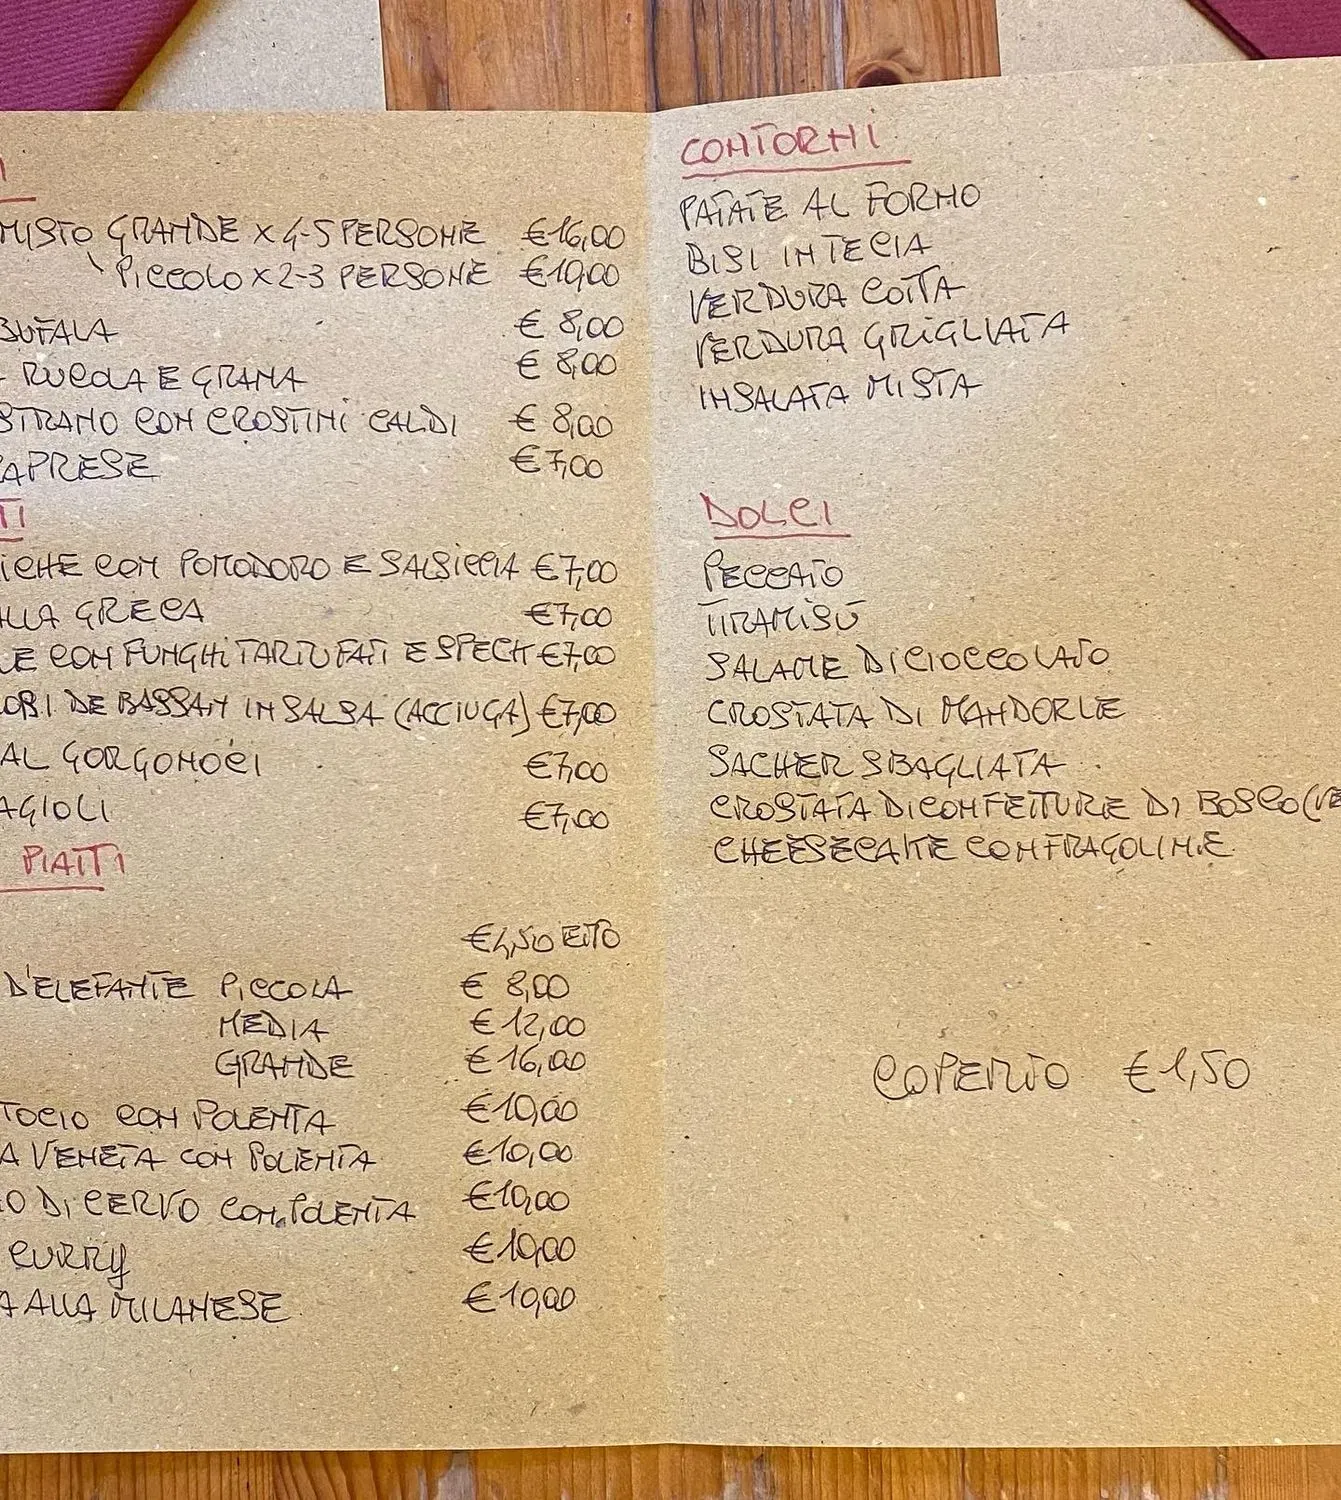 I
MISTO GRANDE X 4-5 PERSONE €16,00
PICCOLO X 2-3 PERSONE €10,00
BUFALA € 8,00
RUCOLA E GRANA € 8,00
STRANO CON CROSTINI CALDI € 8,00
APRESE €7,00
TI
ICHE CON POMODORO E SALSICCIA €7,00
ALLA GRECA €7,00
LE CON FUNGHI TARTUFATI E SPECK €7,00
OBI DE BASSAN IN SALSA (ACCIUGA) €7,00
AL GORGONOCI €7,00
AGIOLI €7,00
PIATTI
€4,50 ETTO
D'ELEFANTE PICCOLA € 8,00
MEDIA € 12,00
GRANDE € 16,00
TOCIO CON POLENTA €10,00
A VENETA CON POLENTA €10,00
O DI CERVO CON POLENTA €10,00
CURRY €10,00
A ALLA MILANESE €10,00
CONTORNI
PATATE AL FORNO
BISI IN TECIA
VERDURA COTTA
VERDURA GRIGLIATA
INSALATA MISTA
DOLCI
PECCATO
TIRAMISÙ
SALAME DI CIOCCOLATO
CROSTATA DI MANDORLE
SACHER SBAGLIATA
CROSTATA DI CONFETTURE DI BOSCO (VE
CHEESECAKE CON FRAGOLINE
COPERTO €1,50